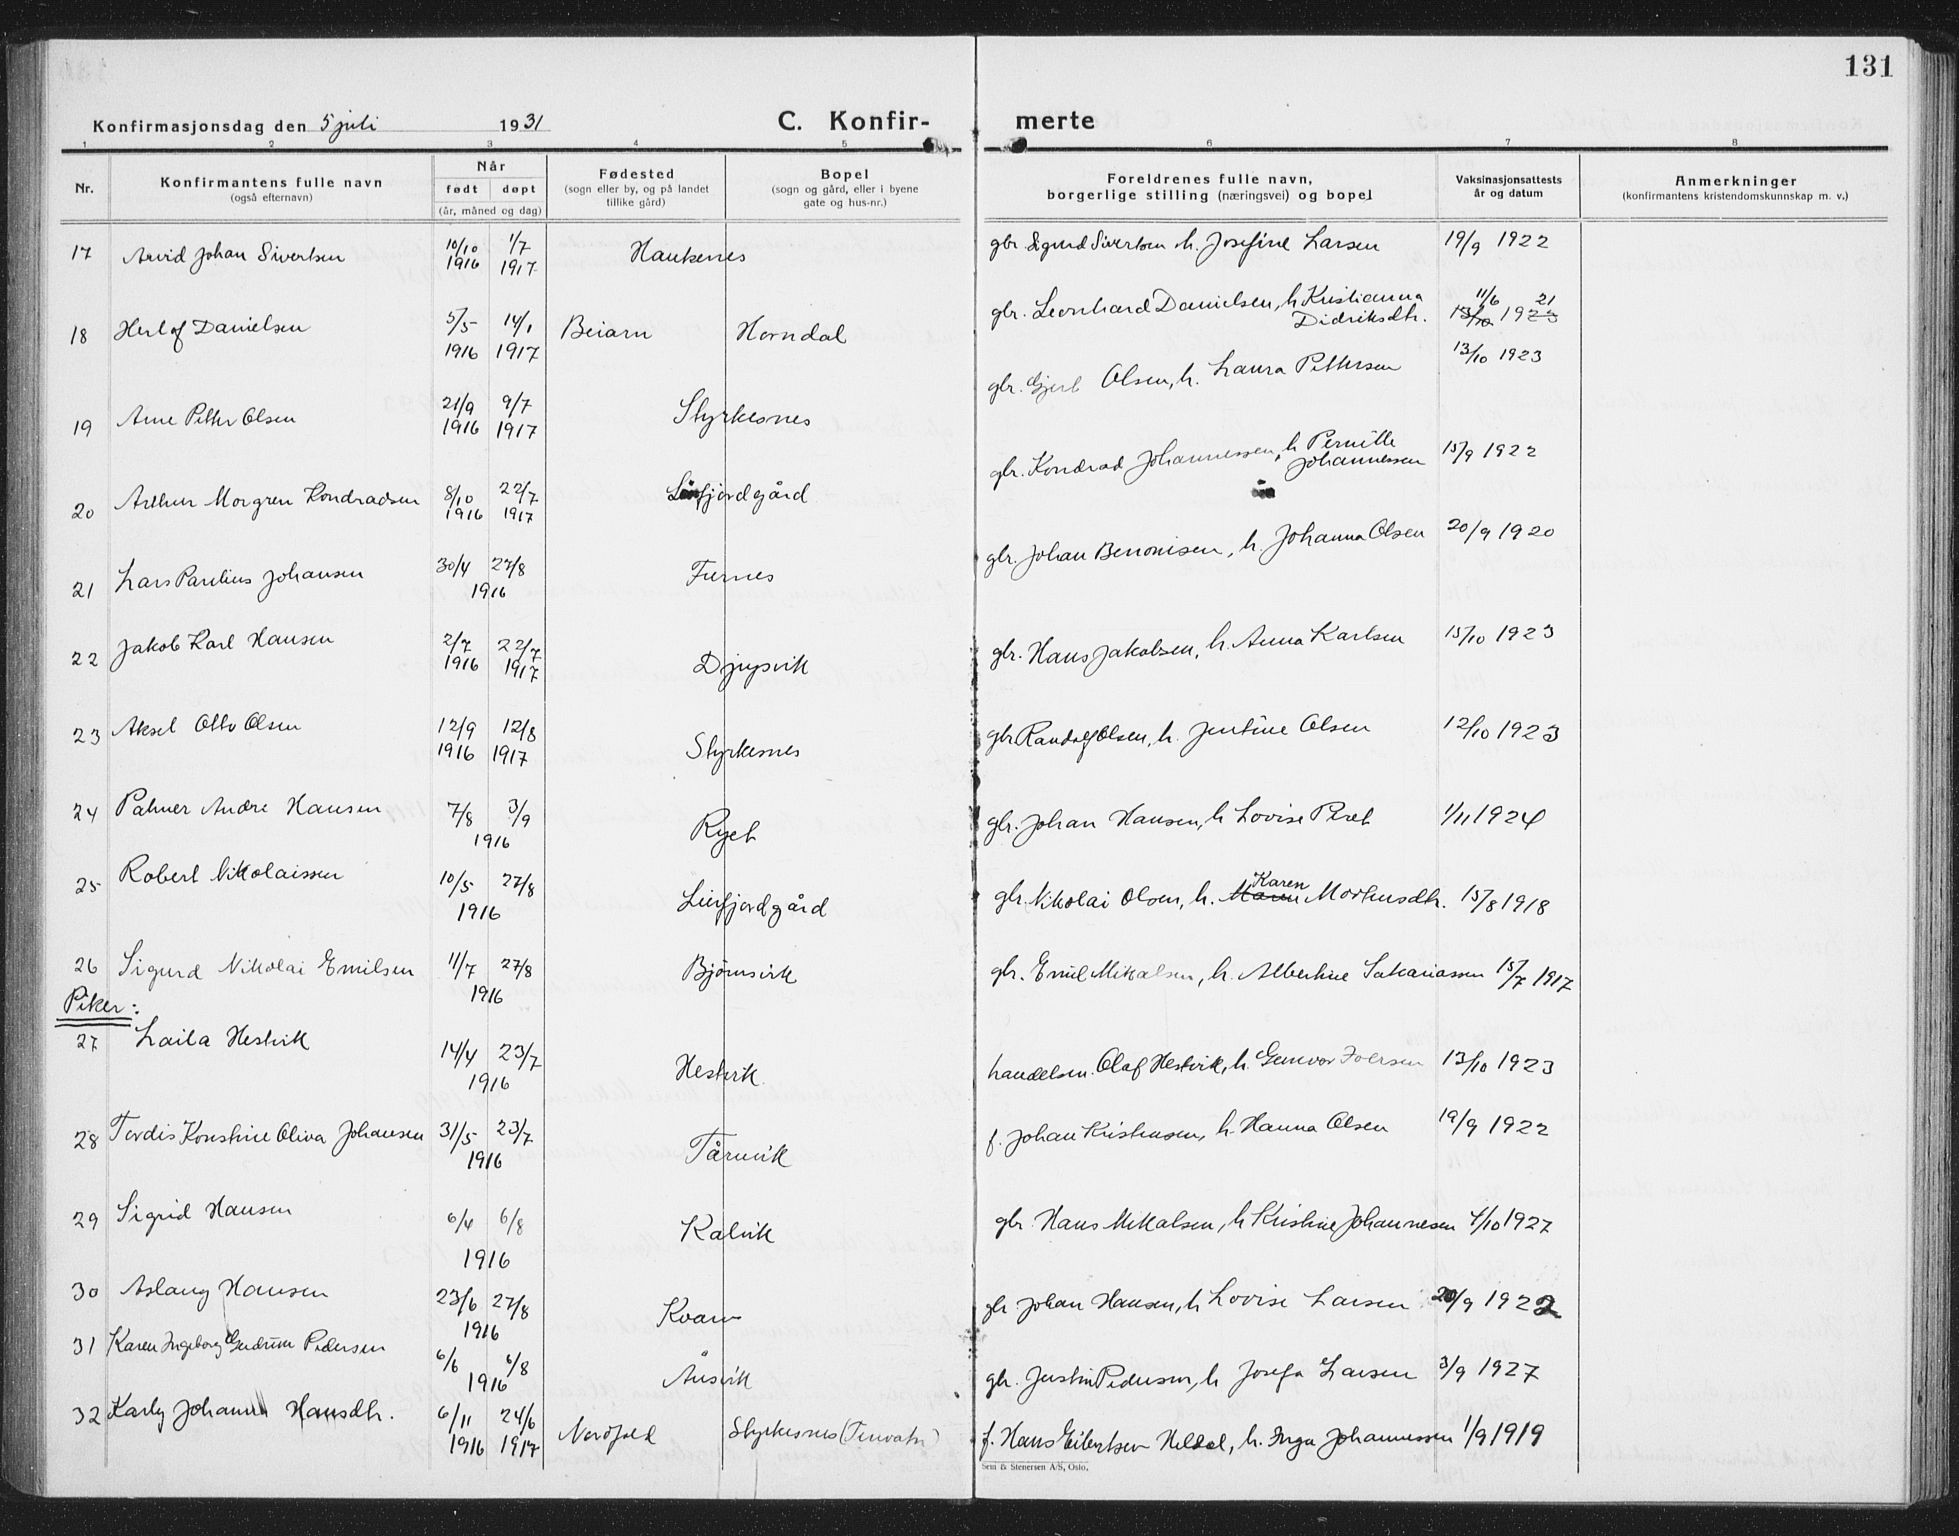 131
Konfirmasjonsdag den 5 juli 1931 C. Konfir- merte
1 2 3 4 5 6 7 8
Nr.
Konfirmantens fulle navn
(også efternavn)
Når
født døpt
(år, måned og dag)
Fødested
(sogn eller by, og på landet
tillike gård)
Bopel
(sogn og gård, eller i byene
gate og hus-nr.)
Foreldrenes fulle navn,
borgerlige stilling (næringsvei) og bopel
Vaksinasjonsattests
år og datum
Anmerkninger
(konfirmantens kristendomskunnskap m. v.)
17 Arvid Johan Sivertsen 10/10 1916 1/7 1917 Haukenes gbr. Sigurd Sivertsen h. Josefine Larsen 19/9 1922
18 Herlof Danielsen 5/5 1916 14/1 1917 Beiarn Horndal gbr. Leonhard Danielsen, h. Kristianna Didriksdtr. 11/6 21 13/10 1923
19 Arne Petter Olsen 21/9 1916 9/7 1917 Styrkesnes gbr. Gjert Olsen, h. Laura Pettersen 13/10 1923
20 Arthur Morgren Kondradsen 8/10 1916 22/7 1917 Leirfjordgård gbr. Kondrad Johannessen, h. Pernille Johannessen 15/9 1922
21 Lars Paulius Johansen 30/4 27/8 1916 Furnes gbr. Johan Benonisen, h. Johanna Olsen 20/9 1920
22 Jakob Karl Hansen 2/7 1916 22/7 1917 Djupvik gbr. Hans Jakobsen, h. Anna Karlsen 15/10 1923
23 Aksel Otto Olsen 12/9 1916 12/8 1917 Styrkesnes gbr Randolf Olsen, h. Jentine Olsen 12/10 1923
24 Palmer Andre Hansen 7/8 3/9 1916 Ryet gbr. Johan Hansen, h Lovise Peret 1/11 1924
25 Robert Nikolaissen 10/5 27/8 1916 Leirfjordgård gbr. Nikolai Olsen, h. Maren Karen Mortensdtr. 15/8 1918
26 Sigurd Nikolai Emilsen 11/7 27/8 1916 Bjørnsvik gbr. Emil Mikalsen, h. Albertine Sakariassen 15/7 1917
Piker:
27 Laila Hestvik 14/4 23/7 1916 Hestvik handelsm. Olaf Hestvik, h. Gunvor Iversen 13/10 1923
28 Tordis Konstine Oliva Johansen 31/5 23/7 1916 Tårnvik f. Johan Kristensen, h. Hanna Olsen 19/9 1922
29 Sigrid Hansen 6/4 6/8 1916 Kalvik gbr. Hans Mikalsen, h Kristine Johannesen 4/10 1927
30 Aslaug Hansen 23/6 27/8 1916 Kvarv gbr Johan Hansen, h Lovise Larsen 20/9 1922
31 Karen Ingeborg Gudrun Pedersen 6/6 6/8 1916 Ånsvik gbr. Justin Pedersen, h Josefa Larsen 3/9 1927
32 Karly Johanna Hansdtr. 6/11 1916 24/6 1917 Nordfold Styrkesnes (Tenvatn) f. Hans Eilertsen Heldal, h. Inga Johannessen 1/9 1919
Sem & Stenersen A/S, Oslo.